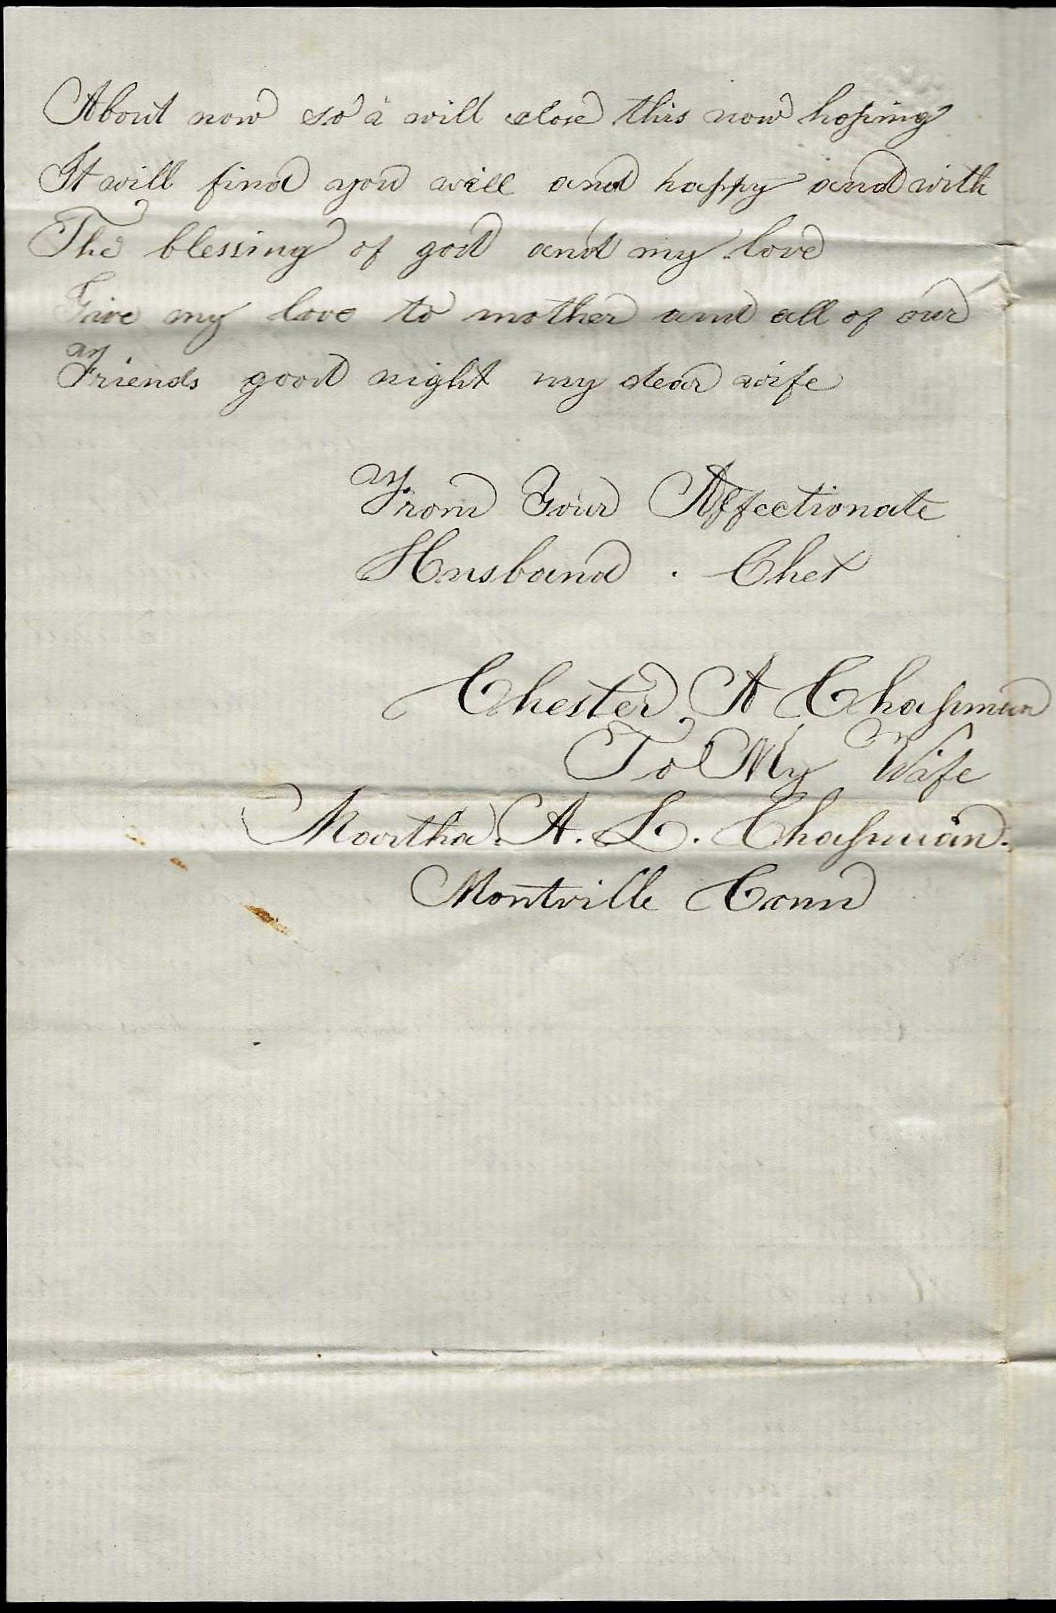 About now so i will close this now hoping
It will find you well and happy and with
The blessing of god and my love
Give my love to mother and all of our
Friends good night my dear wife
From Your Affectionate
Husband . Chet
Chester A Chapman
To My Wife
Martha. A. L. Chapman.
Montville Conn